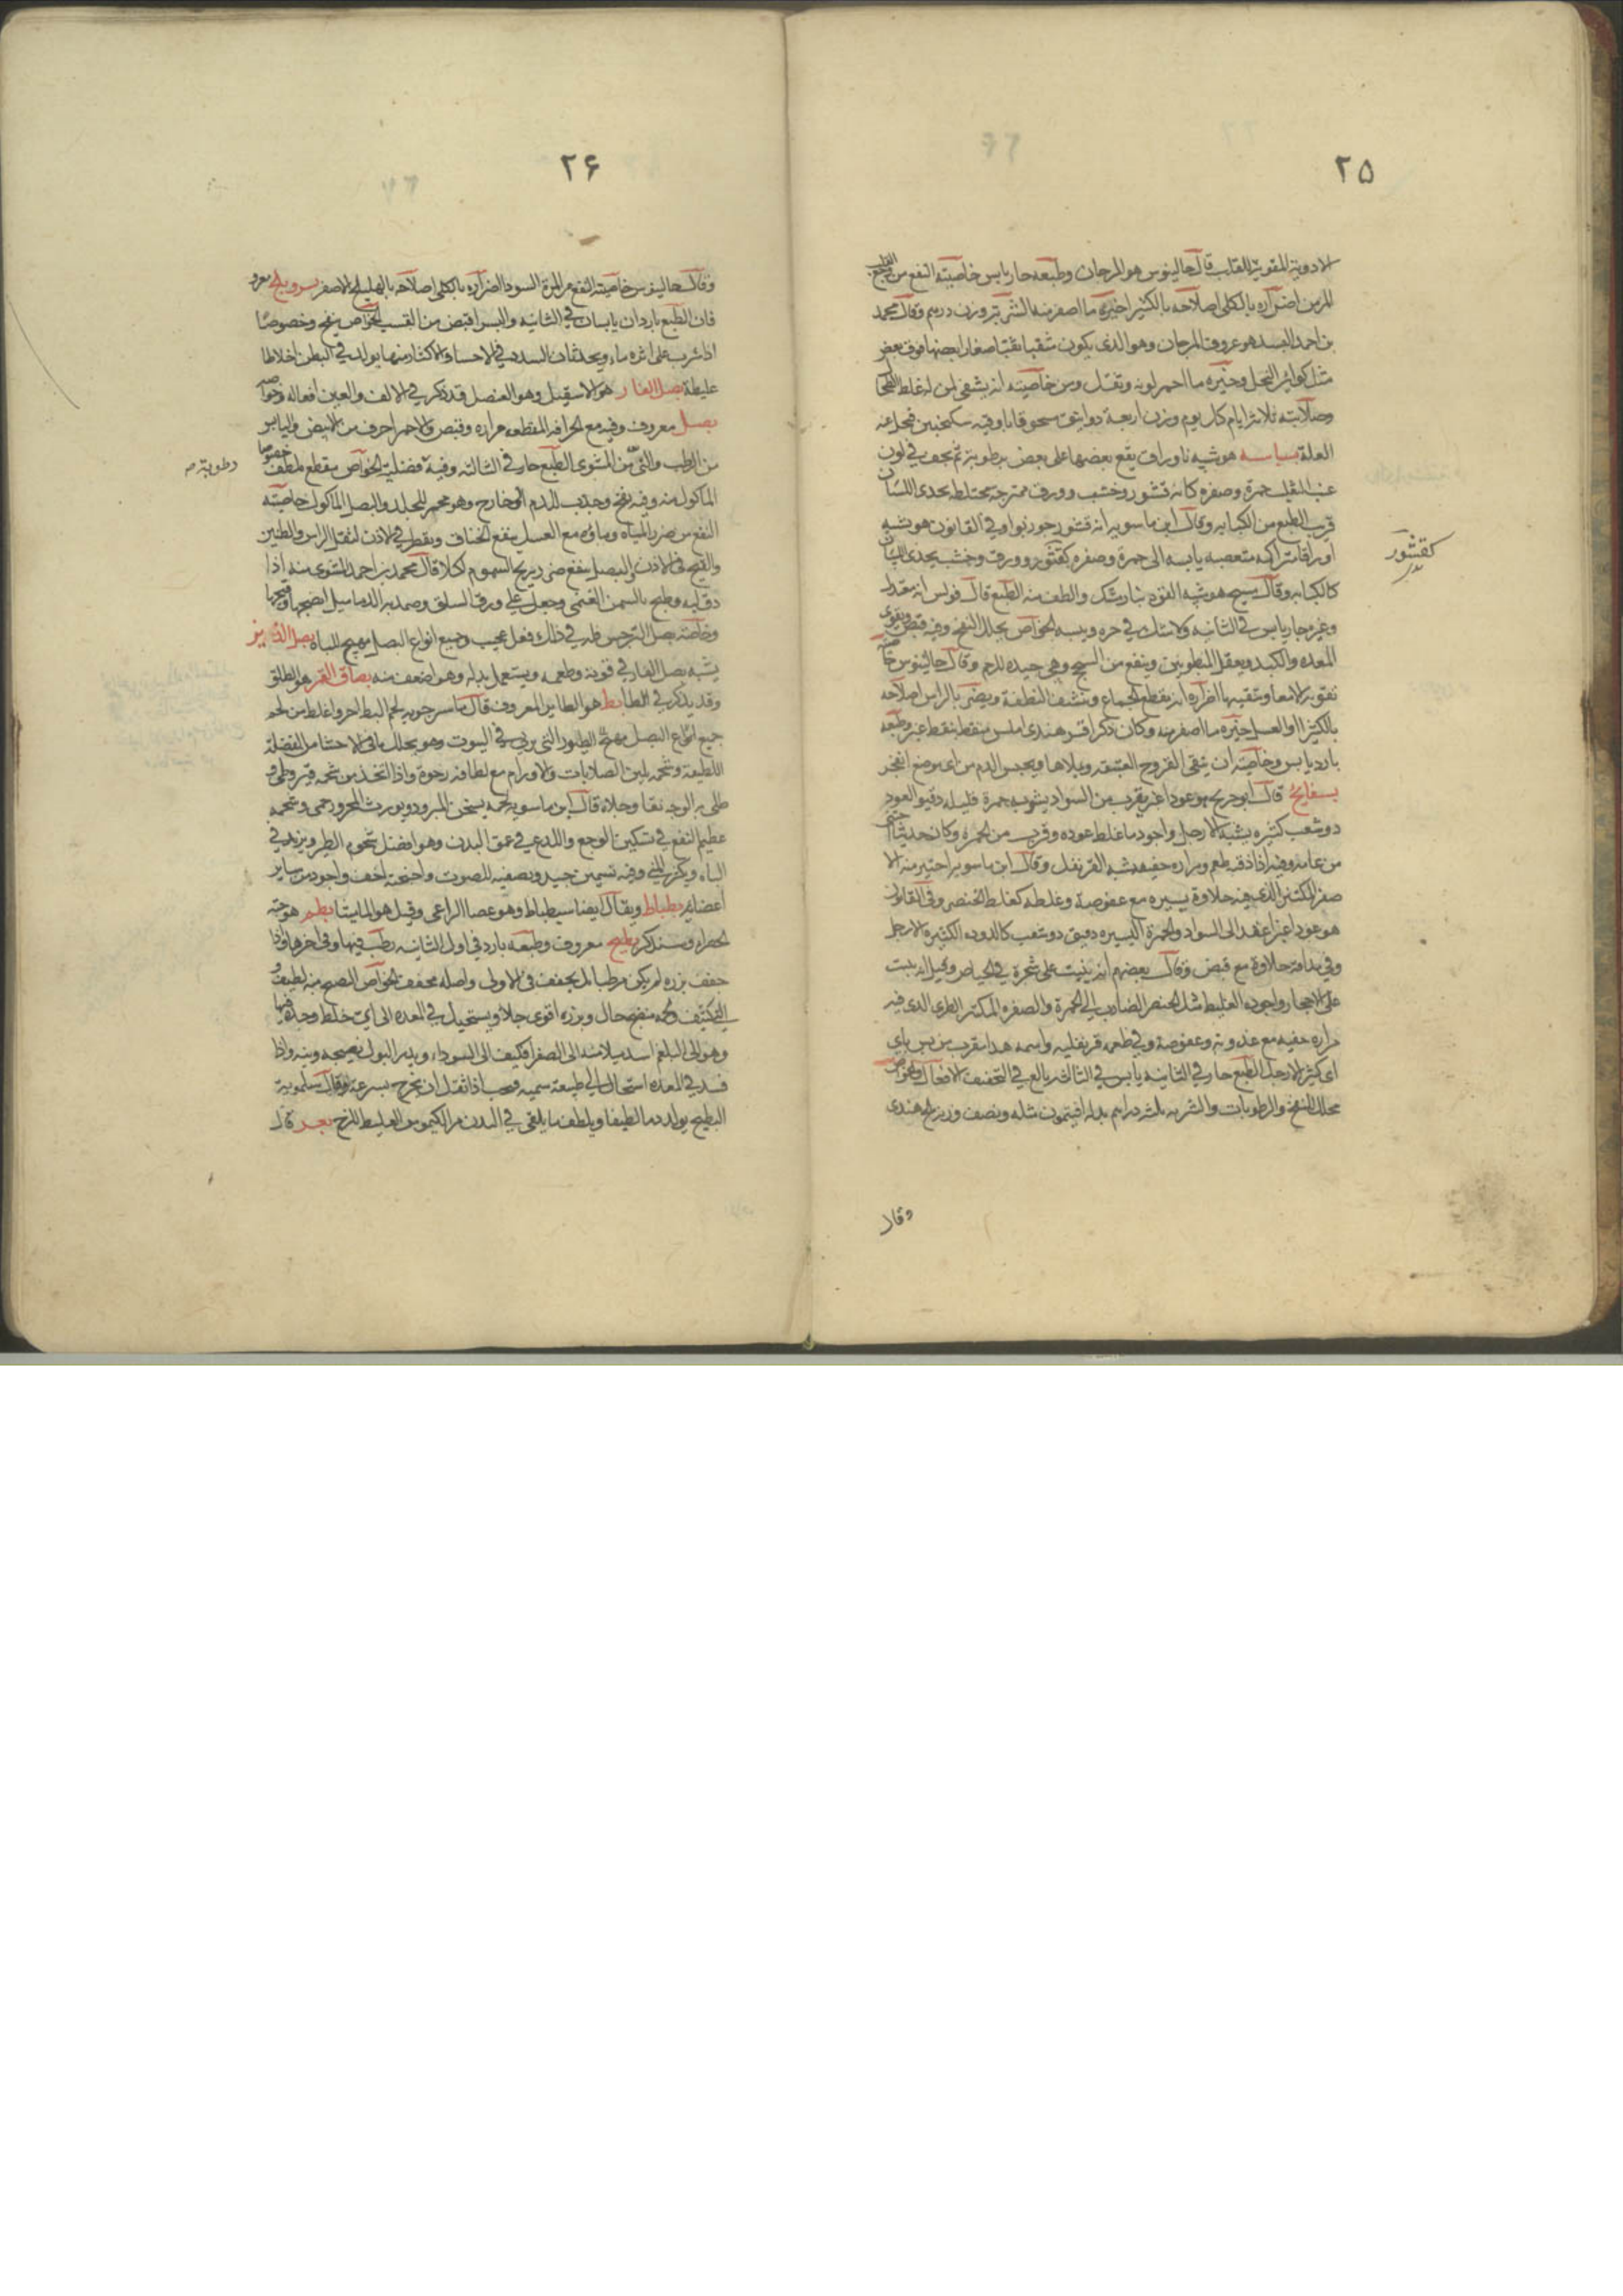 ٢٥
الادوية المقوية للقلب قال جالينوس هو المرجان وطبعه حار يابس خاصيته النفع من
المزمن اضراره بالكلى اصلاحه بالكثيرا خيره ما اصفر منه الشربة وزن درهم وقال محمد
بن احمد البسد هو عروق المرجان وهو الذى يكون مثقبا ثقبا صغارا بعضها فوق بعض
مثل كواير النحل وخيره ما احمر لونه وثقل ومن خاصيته انه يشفى لمن له غلظ الطحال
وصلابته ثلاثة ايام كل يوم وزن اربعة دوانيق مسحوقا باوقيه سكنجبين فيحل عنه
العلة بسباسه هو شبيه باوراق يقع بعضها على بعض برطوبة ثم يجف فى لون
حمرة وصفره كانه قشور وخشب وورق ممتزجة مختلطه يحذى اللسان
قريب الطبع من الكبابه وقال ابن ماسويه انه قشور جوزبوا وفى القانون هو شبه
اوراق متراكمه يابسه الى حمرة وصفره كقشور وورق وخشب يحذى اللسان
كالكبابه وقال مسيح هو شبيه القوه بنارمشك والطف منه الطبع قال فولس انه معتدل
وغيره حار يابس فى الثانيه ولا شك فى حره ويبسه الخواص يحلل النفخ وفيه قبض ويقوى
المعده والكبد ويعقل المبطونين وينفع من السحج وهى جيده للرحم وقال جالينوس
تقويه الامعا وتنقيها اضراره انه يقطع الجماع وينشف النطفة ويضر بالراس اصلاحه
بالكثيرا والعسل خيره ما اصفر منه وطبعه
بارد يابس وخاصيته ان ينقى القروح العتيقه ويملاها ويحبس الدم من اى موضع انفجر
بسفايج قال ابو جريج هو عود اغبر يقرب من السواد يشوبه حمرة قليله دقيق العود
ذو شعب كثيره يشبه الارجل واجود ما غلظ عوده وقرب من الحمرة وكان حديثا
من عامه وفيه اذا ذقته طعم ومراره خفيفه شبه القرنفل وقال ابن ماسويه اختير منه الا
صفر المكسر الذى فيه حلاوة يسيره مع عفوصة وغلظه كغلظ الخنصر وفى القانون
هو عود اغبر الى السواد والحمرة اليسيره دقيق ذو شعب كالدوده الكثيره الارجل
وفى مذاقه حلاوة مع قبض وقال بعضهم انه ينبت على شجرة فى الغياض وقيل انه ينبت
على الاحجار واجوده الغليظ مثل الخنصر الضارب الى الحمرة والصفره المكسر الطرى الذى فيه
مراره خفيه مع عذوبة وعفوصة وفى طعمه قرنفليه واسمه هذا معرب من بس باى
اى كثير الارجل الطبع حار فى الثانيه يابس فى الثالثه بالغ فى التجفيف الافعال والخواص
محلل للنفخ والرطوبات والشربه ثلثه دراهم بدله افتيمون مثله ونصف وزنه ملح هندى
كقشور
وقال
٢۶
وقال جالينوس خاصيته النفع من المرة السودا اضراره بالكلى اصلاحه بالهليلج الاصفر
فان الطبع باردان يابسان فى الثانيه والبسر اقبض من القسب الخواص ينفخ وخصوصا
اذا شرب على اثره ماء ويحدثان السدد فى الاحشا والاكثار منها يولد فى البطن اخلاطا
غليظة بصل الفار هو الاسقيل وهو العنصل قد ذكر فى الالف والعين افعاله وخواصه
بصل معروف وفيه مع الحرافه المقطعه مراره وقبض والاحمر احرف من الابيض واليابس
من الرطب والنى من المشوى الطبع حار فى الثالثه وفيه فضليه الخواص مقطع ملطف خصوصا
رطوبة صح
الماكول منه وفيه نفخ وجذب للدم الى خارج وهو محمر للجلد والبصل الماكول خاصيته
النفع من ضرر المياه وماؤه مع العسل ينفع الخناق ويقطر فى الاذن لثقل الراس والطنين
والقيح فى الاذن والبصل ينفع من ريح السموم اكلا قال محمد بن احمد المشوى منه اذا
دق لبه وطبخ بالسمن الغنمى وجعل على ورق السلق وضمد به الدماميل انضجها وفتحها
وخاصة بصل النرجس فله فى ذلك فعل عجيب وجميع انواع البصل يهيج الباه بصل الزيز
يشبه بصل الفار فى قوته وطعمه ويستعمل بدله وهو اضعف منه بصاق القمر هو الطلق
وقد يذكر فى الطا بط هو الطاير المعروف قال ماسرجويه لحم البط احر واغلظ من لحم
جميع الطيور التى تربى فى البيوت وهو يحلل باقى الاحشا من الفضلة
اللطيفة وشحمه يلين الصلابات والاورام مع لطافه رخوة واذا اتخذ من شحمه قيروطى و
طلى به الوجه نقا وجلاه قال ابن ماسويه لحمه يسخن المبرود ويورث المحرور حمى وشحمه
عظيم النفع فى تسكين الوجع واللذع فى عمق البدن وهو افضل شحوم الطير ويزيد فى
الباه ويكثر المنى وفيه تسمين جيد وتصفيه للصوت واجنحته اخف واجود من ساير
اعضايه بطباط ويقال ايضا سبطباط وهو عصا الراعى وقيل هو المايثا بطم هو حبة
الخضراء وسنذكر بطيخ معروف وطبعه بارد فى اول الثانيه رطب فيها وفى اخرها واذا
جفف بزره لم يكن مرطبا بل يجفف فى الاولى واصله مجفف الخواص النضيج منه لطيف و
النى كثيف ولحمه منضج جال وبزره اقوى جلاء ويستحيل فى المعده الى اى خلط وجده فيها
وهو الى البلغم اشد ميلا منه الى الصفرا فكيف الى السوداء ويدر البول نضيجه ونيه واذا
فسد فى المعده استحال الى طبيعة سميه فيجب اذا ثقل ان يخرج بسرعة وقال سلمويه
البطيخ يولد دما لطيفا ويلطف ما يلقى فى البدن من الكيموس الغليظ اللزج بعر قال